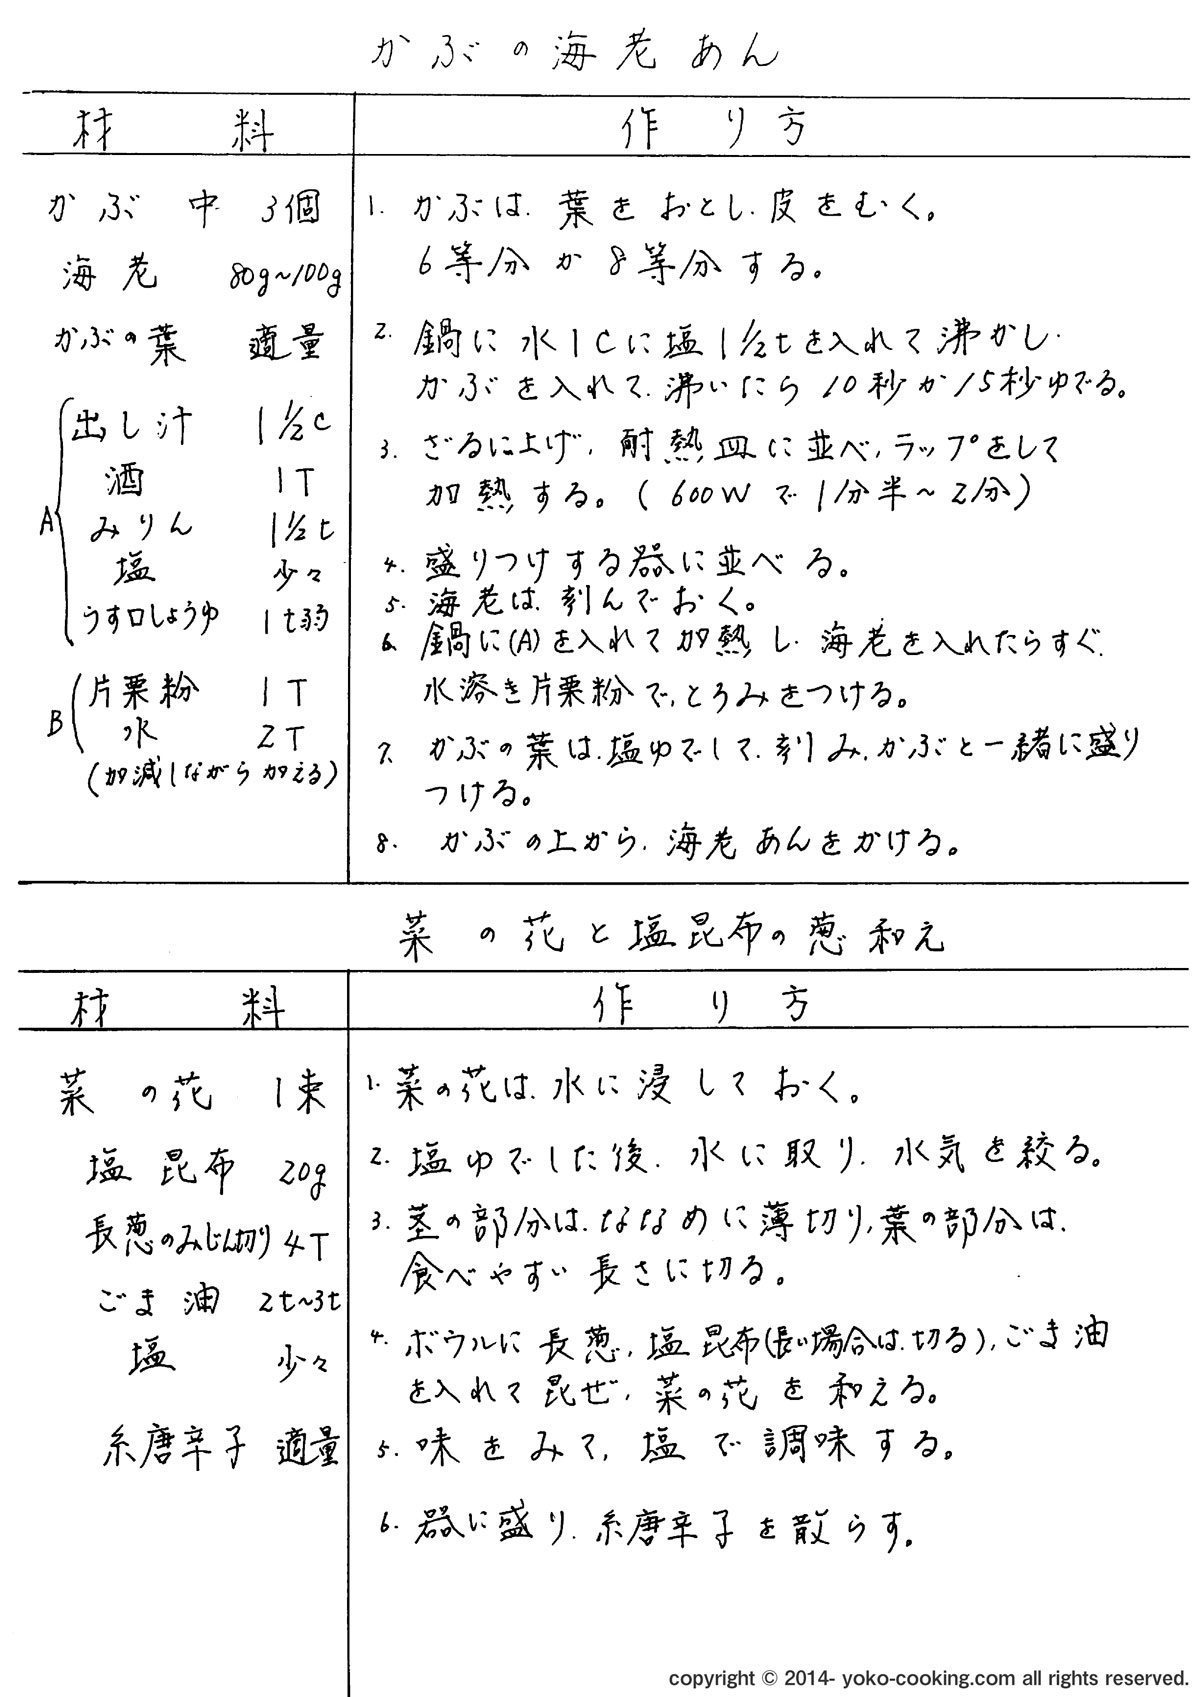 かぶの海老あん
材料
作り方
かぶ 中 3個
海老 80g~100g
かぶの葉 適量
A
出し汁 1 1/2C
酒 1T
みりん 1 1/2t
塩 少々
うす口しょうゆ 1t弱
B
片栗粉 1T
水 2T
(加減しながら加える)
1. かぶは、葉をおとし、皮をむく。
6等分か8等分する。
2. 鍋に水1Cに塩1 1/2tを入れて沸かし、
かぶを入れて、沸いたら10秒か15秒ゆでる。
3. ざるに上げ、耐熱皿に並べ、ラップをして
加熱する。(600Wで1分半~2分)
4. 盛りつけする器に並べる。
5. 海老は、刻んでおく。
6. 鍋に(A)を入れて加熱し、海老を入れたらすぐ、
水溶き片栗粉で、とろみをつける。
7. かぶの葉は、塩ゆでして、刻み、かぶと一緒に盛り
つける。
8. かぶの上から、海老あんをかける。
菜の花と塩昆布の葱和え
材料
作り方
菜の花 1束
塩昆布 20g
長葱のみじん切り 4T
ごま油 2t~3t
塩 少々
糸唐辛子 適量
1. 菜の花は、水に浸しておく。
2. 塩ゆでした後、水に取り、水気を絞る。
3. 茎の部分は、ななめに薄切り、葉の部分は、
食べやすい長さに切る。
4. ボウルに長葱、塩昆布(長い場合は、切る)、ごま油
を入れて混ぜ、菜の花を和える。
5. 味をみて、塩で調味する。
6. 器に盛り、糸唐辛子を散らす。
copyright © 2014- yoko-cooking.com all rights reserved.